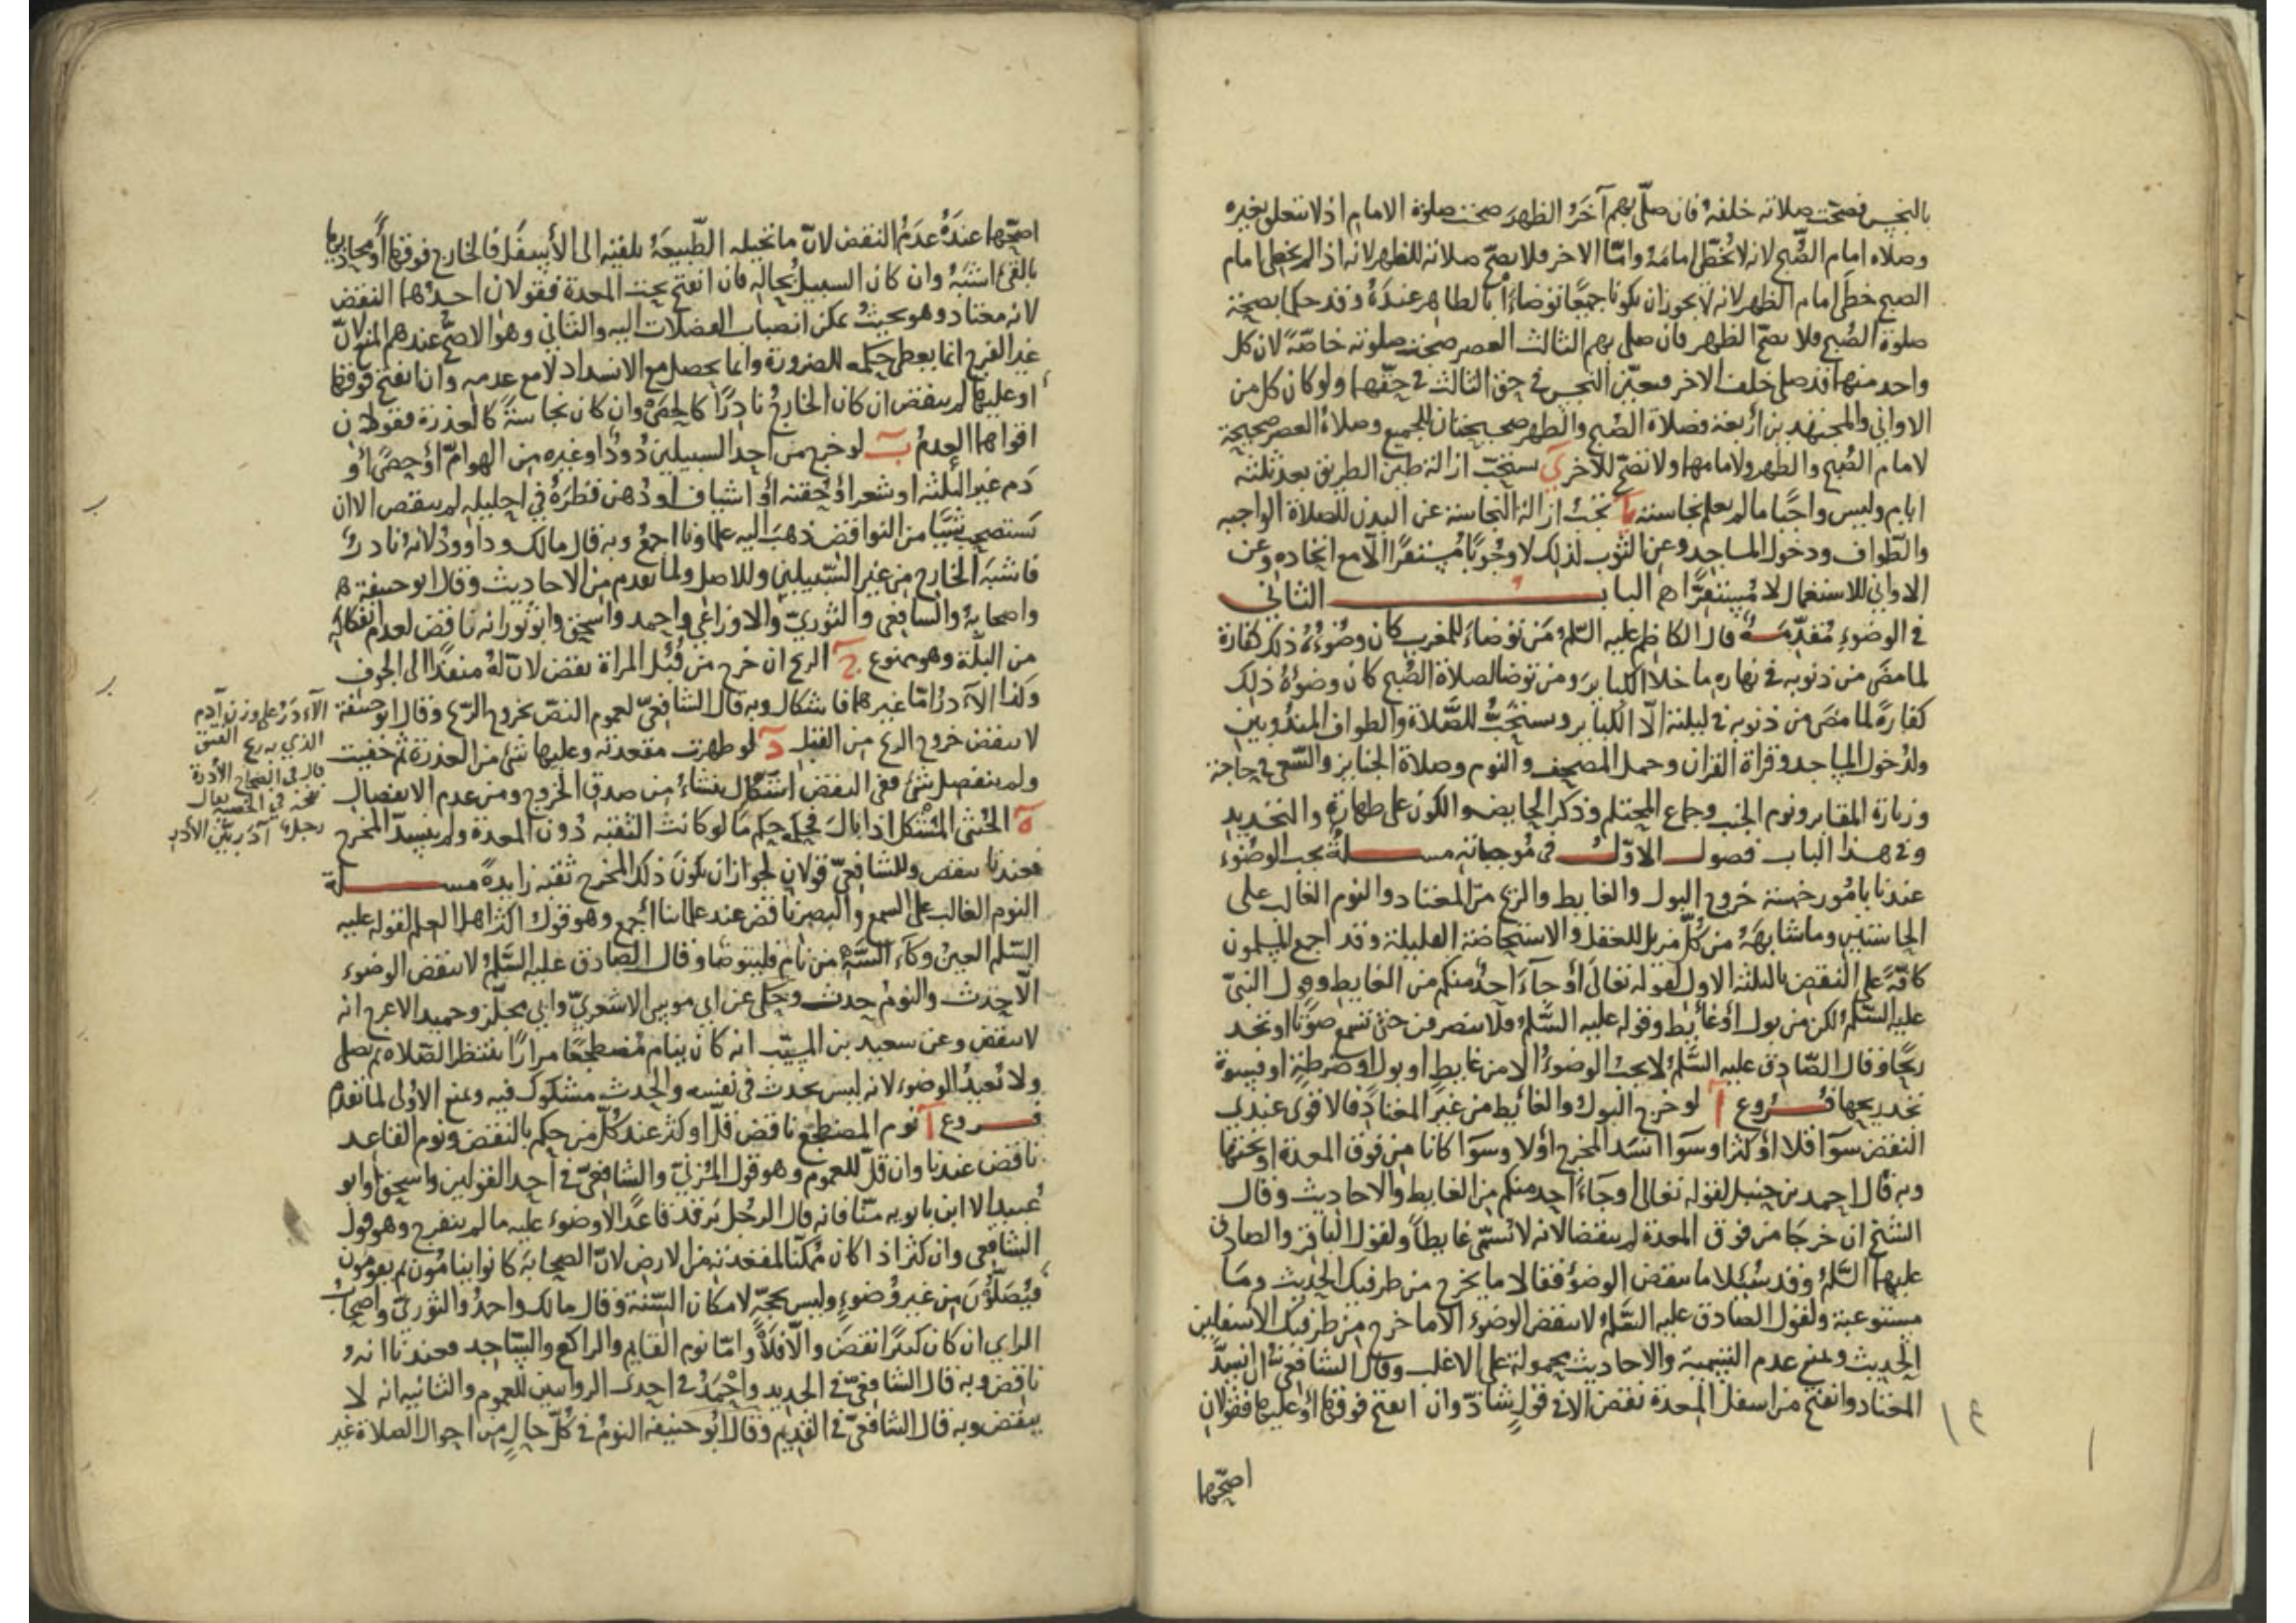 بالنجس فصحّت صلاته خلفه فان صلّى بهم آخر الظهر صحت صلوة الامام اذ لا تتعلق بغيره
وصلاه امام الصّبح لانه لا يُخطّى امامهُ وامّا الاخر فلا يصحّ صلاته للظهر لانه اذا لم يخطى امام
الصبح خطى امام الظهر لانه لا يجوز ان يكونا جميعًا توضاءا بالطاهر عندهُ وقد حكم بصحة
صلوة الصُبح فلا يصحّ الظهر فان صلى بهم الثالث العصر صحت صلوته خاصّةً لان كل
واحد منهما قد صلى خلف الاخر فتعيّن النجس في حق الثالث في حقّهما ولو كان كل من
الاواني والمجتهدين اربعة فصلاة الصُبح والظهر صحيحتان للجميع وصلاة العصر صحيحة
لامام الصُبح والظهر ولامامها ولا تصحّ للاخر ي يستحبّ ازالة طين الطريق بعد ثلثة
ايام وليس واجبًا ما لم يعلم نجاسته يا تجبُ ازالة النجاسة عن البدن للصلاة الواجبه
والطّواف ودخول المساجد وعن الثوب لذلك لا وجُوبًا مُستقرًا الّا مع اتحاده وعن
الاواني للاستعمال لا مُستقرًّا هم البابـــ الثاني
في الوضوءِ مُقدّمـــةٌ قال الكاظم عليه السّلم مَن توضاءَ للمغرب كان وضوُءُهُ ذلك كفارة
لما مضَى من ذنوبه في نهاره ما خلا الكبايرَ ومن توضا لصلاة الصُبح كان وضوُءُهُ ذلك
كفارةً لما مضَى من ذنوبه في ليلته الّا الكباير ويستحَبُّ للصَّلاة والطواف المندُوبين
ولدُخول المساجد وقراة القران وحمل المصحف والنوم وصلاة الجنايز والسّعى في حاجة
وزيارة المقابر ونوم الجنب وجماع المحتلم وذكر الحايض والكون على طهارةٍ والتجديد
وفي هذا الباب فصولــ الاوّلــُ في مُوجباته مســلةٌ يجب الوضُوء
عندنا بامُور خمسة خروج البول والغايط والريح من المعتاد والنوم الغالب على
الحاستين وما شابهَهُ من كُلّ مزيل للعقل والاستحاضة القليلة وقد اجمع المسلمون
كافّةً على النقض بالثلثة الاول لقوله تعالى أو جآءَ احدٌ منكم من الغايط وقول النبيّ
عليه السّلمُ لكن من بول أو غائط وقوله عليه السَّلمُ فلا ينصرفن حتى تسمع صوتًا او تجد
ريحًا وقال الصّادق عليه السَّلمُ لا يجبُ الوضوءُ الا من غايطٍ او بول او ضرطةٍ او فسوة
تجد ريحها فـــُروع آ لو خرج البول والغائط من غير المعتادِ فالاقوى عندى
النقض سوآ قلا او كثرا وسوآ انسَد المخرج اوّلا وسوآ كانا من فوق المعدة او تحتها
وبه قال احمد بن حنبل لقوله تعالى أو جَآءَ احد منكم من الغايط والاحاديث وقال
الشيخ ان خرجَا من فوق المعدة لم ينقضا لانه لا يُسمّى غايطاً ولقول الباقر والصادق
عليهما السَّلمُ وقد سُئلا ما ينقض الوضوءَ فقالا ما يخرج من طرفيك الحديث ومَا
مستوعبة ولقول الصادق عليه السَّلمُ لا ينقض الوضوء الا ما خرج من طرفيك الاسفلين
الحديث ونمنع عدم التسمية والاحاديث محمولة على الاغلب وقال الشافعيّ ان انسَدّ
المعتاد وانفتح من اسفل المعدة نقض الا في قولٍ شاذّ وان انفتح فوقها أو عليها فقولان
اصحّهما
اصحّهما عندَهُ عدَمُ النقض لانّ ما تحيله الطّبيعَةُ تلقيه الى الأسفل فالخارج فوقها أو محاذيها
بالقئ اشبَهُ وان كان السبيل بحاله فان انفتح تحت المعدة فقولان احدهما النقض
لانه معتاد وهو بحيثُ يمكن انصباب الفضلات اليه والثاني وهو الاصحّ عندهم المنع لانّ
غير الفرج انما يعطى حكمه للضرورة وانما يحصل مع الانسداد لا مع عدمه وان انفتح فوقها
او عليها لم ينقض ان كان الخارجُ نادرًا كالحصَى وان كان نجاسةً كالعذرة فقولان
اقواهما العدمُ ب لو خرج من احد السبيلين دُودٌ او غيره من الهوامّ أو حصًى أو
دَم غير الثلثة او شعر أو حُقنه أو اشياف او دُهن قطرَهُ في احليله لم ينقض الا ان
تستصحب شيًا من النواقض ذهبَ اليه علماونا اجمعُ وبه قال مالك وداوودُ لانهُ نادرٌ
فاشبَهَ الخارج من غير السَّبيلين وللاصل ولما تقدم من الاحاديث وقال ابو حنيفة
واصحابهُ والشافعى والثوريّ والاوزاعي واحمد واسحق وابو ثور انه ناقض لعدم انفكاكه
من البلّة وهو ممنوع ج الريح ان خرج من قُبُل المراة نقض لانّ لهُ منفذًا الى الجوف
وكذا الآدَر امّا غيرهما فاشكال وبه قال الشافعيّ لعموم النصّ بخروج الرّيح وقال ابو حنيفة
لا ينقض خروج الريح من القبل د لو ظهرت مقعدته وعليها شئ من العذرة ثم خفيت
ولم ينفصل شئ ففى النقض اشكال ينشاءُ من صدق الخروج ومن عدم الانفصال
ه الخُنثى المشكل اذا بالَ فحكمه حكم ما لو كانت الثقبه دُون المعدة ولم ينسدّ المخرج
فعندنا ينقض وللشافعيّ قولان لجواز ان يكونَ ذلك المخرج ثقبه زايدةً مســلة
النوم الغالب على السمع والبصر ناقض عند علمائنا أجمع وهو قول اكثر اهل العلم لقوله عليه
السّلم العينُ وكآءُ السَّهِ من نام فليتوضا وقال الصادق عليه السَّلمُ لا ينقض الوضوءَ
الّا حدث والنومُ حدث وحُكى عن ابى موسى الاشعريّ وابى مجلّز وحميد الاعرج انه
لا ينقض وعن سعيد بن المسيّب انه كان ينام مُضطجعًا مرارًا ينتظر الصّلاه ثم يصلى
ولا تُعيدُ الوضوء لانه ليس بحدث في نفسه والحدث مشكوك فيه ونمنع الاوُلى لما تقدم
فـــروع آ نوم المضطجع ناقض قلّ او كثر عند كُلّ من حكم بالنقض ونوم القاعد
ناقض عندنا وان قلّ للعموم وهو قول المُزنيّ والشافعيّ في احد القولين واسحق وابو
عُبيد الا ابن بابويه منّا فانه قال الرجُل يَرقد قاعدًا لا وضوءَ عليه ما لم ينفرج وهو قول
الشافعي وان كثر اذا كان مُمكّنا لمقعدته من الارض لانّ الصحابَة كانوا ينامُون ثم يقومُون
فيُصَلُّونَ من غير وُضوءٍ وليس بحجّةٍ لامكان السّنة وقال مالك واحمدُ والثوريّ واصحابُ
الراي ان كان كثيرًا نقضَ والّا فلا وامّا نوم القايم والراكع والسّاجد فعندنا انهُ
ناقض وبه قال الشافعيّ في الجديد واحْمَدُ في احدى الروايتين للعموم والثانيه انه لا
ينقض وبه قال الشافعيّ في القديم وقال ابُو حنيفه النومُ في كُلّ حالٍ من احوال الصلاة غير
الآدَرُ على وزن آدم
الذي به ريح الفتق
قال في الصحاح الأُدرة
نفخة في الخصية يقال
رجلٌ آدَر بيّن الأدر